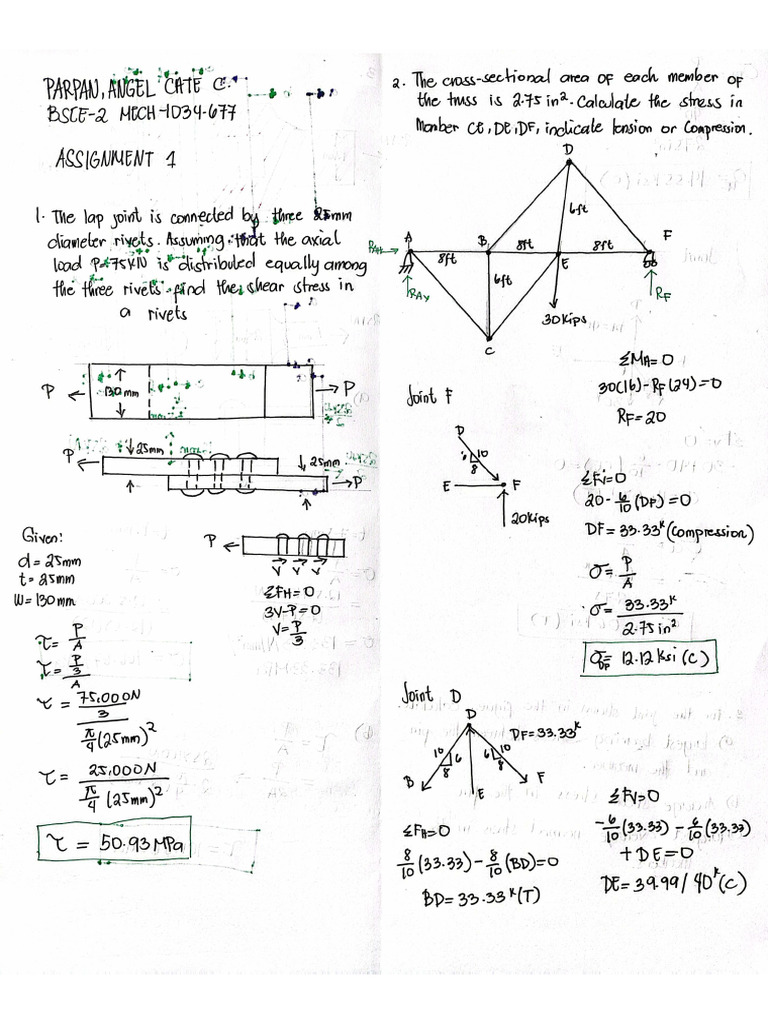 PARPAN, ANGEL CATE C.
BSCE-2 MECH-1034-677
ASSIGNMENT 1
1. The lap joint is connected by three 25mm
diameter rivets. Assuming that the axial
load P=75KN is distributed equally among
the three rivets find the shear stress in
a rivets
P
130mm
P
P
25mm
25mm
P
Given:
d = 25mm
t = 25mm
W = 130mm
P
V V V
ΣFH=0
3V-P=0
V= P/3
τ = P/A
τ = (P/3)/A
τ = (75,000N/3)/(π/4 (25mm)²)
τ = 25,000N/(π/4 (25mm)²)
τ = 50.93 MPa
2. The cross-sectional area of each member of
the truss is 2.75 in². Calculate the stress in
Member CE, DE, DF, indicate tension or compression.
D
6ft
A
B
E
F
RAH
8ft
8ft
8ft
RAV
6ft
RF
30 Kips
C
ΣMA=0
30(16)-RF(24)=0
RF=20
Joint F
D
10
6
8
E
F
20Kips
ΣFV=0
20- 6/10 (DF)=0
DF= 33.33ᵏ (compression)
σ= P/A
σ= 33.33ᵏ/2.75 in²
σDF= 12.12 Ksi (C)
Joint D
D
DF=33.33ᵏ
10
6
8
6
10
8
B
E
F
ΣFH=0
8/10 (33.33) - 8/10 (BD)=0
BD= 33.33ᵏ(T)
ΣFV=0
-6/10 (33.33) - 6/10 (33.33)
+ DE=0
DE= 39.99/ 40ᵏ(C)